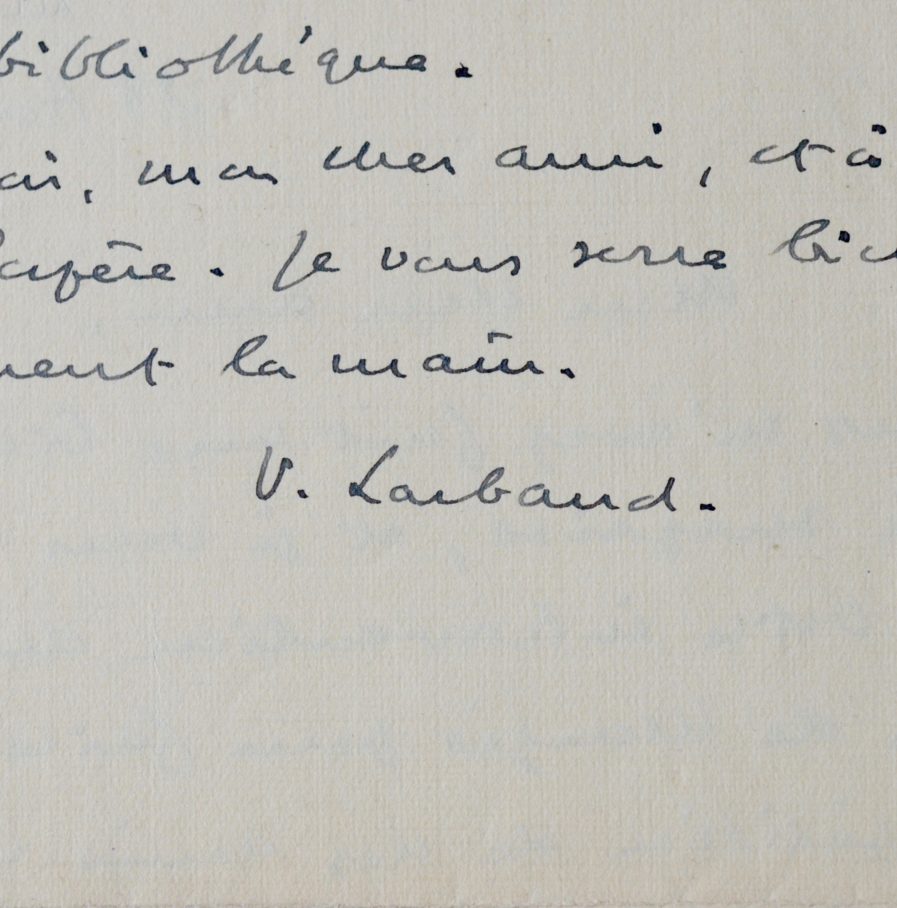 bibliothèque.
oi, mon cher ami, et à
espère. Je vous serre bien
ment la main.
V. Larbaud.